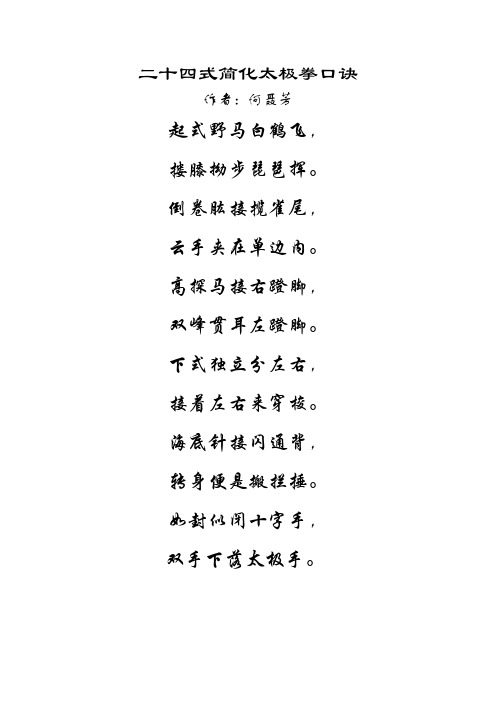 二十四式简化太极拳口诀
作者：何聂芳
起式野马白鹤飞，
搂膝拗步琵琶挥。
倒卷肱接揽雀尾，
云手夹在单边内。
高探马接右蹬脚，
双峰贯耳左蹬脚。
下式独立分左右，
接着左右来穿梭。
海底针接闪通背，
转身便是搬拦捶。
如封似闭十字手，
双手下落太极手。